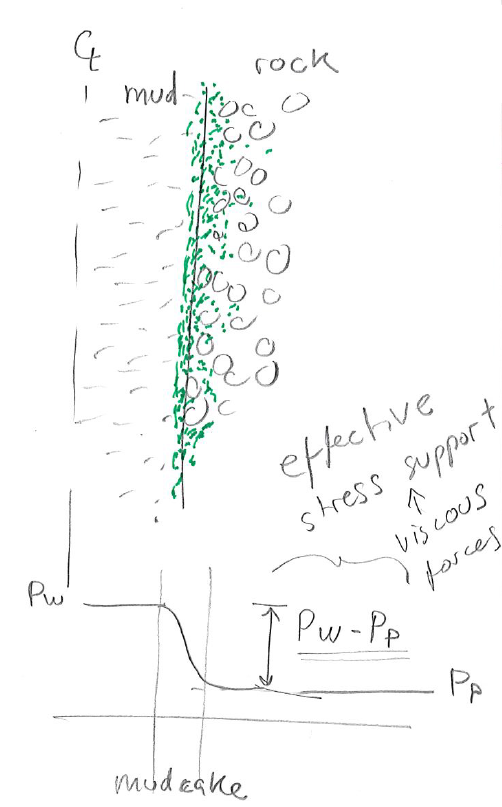 ℄
rock
mud
effective
stress support
↑
viscous
forces
Pw
Pw - Pp
Pp
mudcake